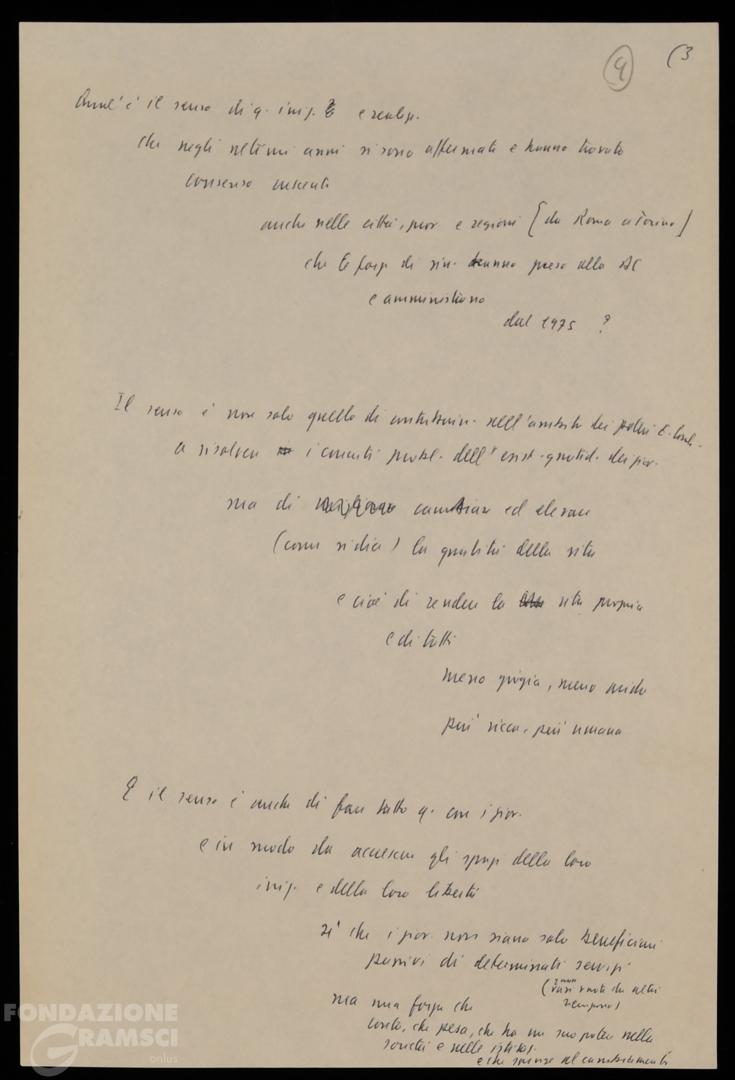 9 (3
Qual'è il senso di q. iniz. e realizz.
che negli ultimi anni si sono affermate e hanno trovato
consenso crescenti
anche nelle città, prov. e regioni (da Roma a Torino)
che le forze di sin. hanno preso alla DC
e amministrano
dal 1975 ?
Il senso è non solo quello di contribuire nell'ambito dei poteri E. Loc.
a risolvere i concreti probl. dell'esist. quotid. dei giov.
ma di cambiare ed elevare
(come si dice) la qualità della vita
e cioè di rendere la vita propria
e di tutti
meno grigia, meno arida
più ricca, più umana
E il senso è anche di fare tutto q. con i giov.
e in modo da accrescere gli spazi della loro
iniz. e della loro libertà
sì che i giov. non siano solo beneficiari
passivi di determinati servizi
ma una forza che
conta, che pesa, che ha un suo potere nella
società e nelle istituz.
e che spinge al cambiamento
FONDAZIONE
GRAMSCI
onlus